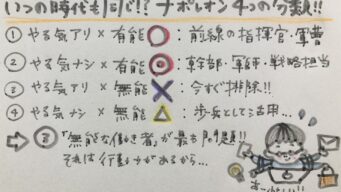 いつの時代も同じ!? ナポレオン4つの分類!!
① やる気アリ × 有能 ◯ : 前線の指揮官・軍曹
② やる気ナシ × 有能 ◎ : 幹部・軍師・戦略担当
③ やる気アリ × 無能 × : 今すぐ排除!!
④ やる気ナシ × 無能 △ : 歩兵として活用…
⇨ ③ "無能な働き者"が最も問題!!
それは行動力があるから…